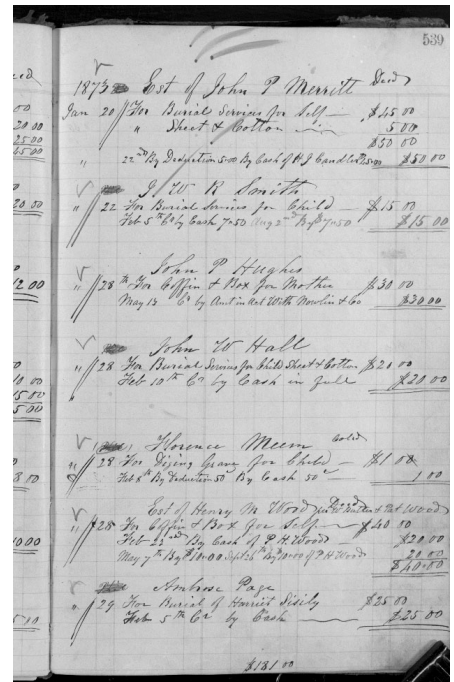 539
1873 Est of John P Merritt Dced
Jan 20 For Burial Services for Self — $45 00
" Sheet & Cotton — 5 00
$50 00
" 22nd By Deduction 5.00 By Cash of A J Candler 45.00 $50 00
J. W R Smith
" 22 For Burial Services for Child — $15 00
Feb 5th Cr by Cash 7=50 Aug 2nd By 7=50 $15 00
John P Hughes
" 28th For Coffin & Box for Mother $30 00
May 13 Cr by Amt in act With Nowlin & Co $30 00
John W Hall
" 28 For Burial Services for Child Sheet & Cotton $20 00
Feb 10th Cr by Cash in full $20 00
Florence Meem Cold
" 28 For Diging Grave for Child — $1 00
Feb 8th By Deduction 50 By Cash 50 1 00
Est of Henry M Wood Dced & Pat Wood
" 28 For Coffin & Box for Self — $40 00
Feb 22nd By Cash of P. H. Wood — $20 00
May 7th By 10=00 Sept 25th By 10=00 of P H Wood 20 00
$40=00
Ambrose Page
" 29 For Burial of Harriet Sisily $25 00
Feb 5th Cr by Cash — $25 00
$181 00
20 00
25 00
45 00
20 00
12 00
10 00
15 00
5 00
8 00
10 00